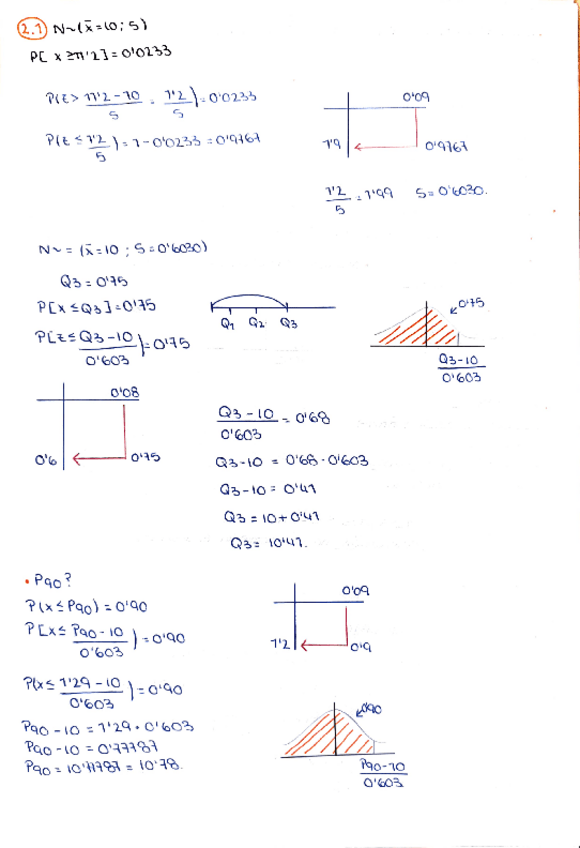 2.1 N~(x̄=10; S)
P[x≥11'2]=0'0233
P(z > 11'2-10/S = 1'2/S)=0'0233
P(z ≤ 1'2/S)=1-0'0233=0'9767
0'09
1'9 0'9767
1'2/S = 1'99 S=0'6030.
N~=(x̄=10; S=0'6030)
Q3=0'75
P[x≤Q3]=0'75
P[z≤ Q3-10/0'603)=0'75
Q1 Q2 Q3
0'75
Q3-10/0'603
0'08
0'6 0'75
Q3-10/0'603 = 0'68
Q3-10 = 0'68·0'603
Q3-10 = 0'41
Q3 = 10+0'41
Q3 = 10'41.
• P90?
P(x≤P90)=0'90
P[x≤ P90-10/0'603)=0'90
P(x≤ 1'29-10/0'603)=0'90
P90-10 = 1'29·0'603
P90-10 = 0'77787
P90 = 10'77787 = 10'78.
0'09
1'2 0'9
0'90
P90-10/0'603